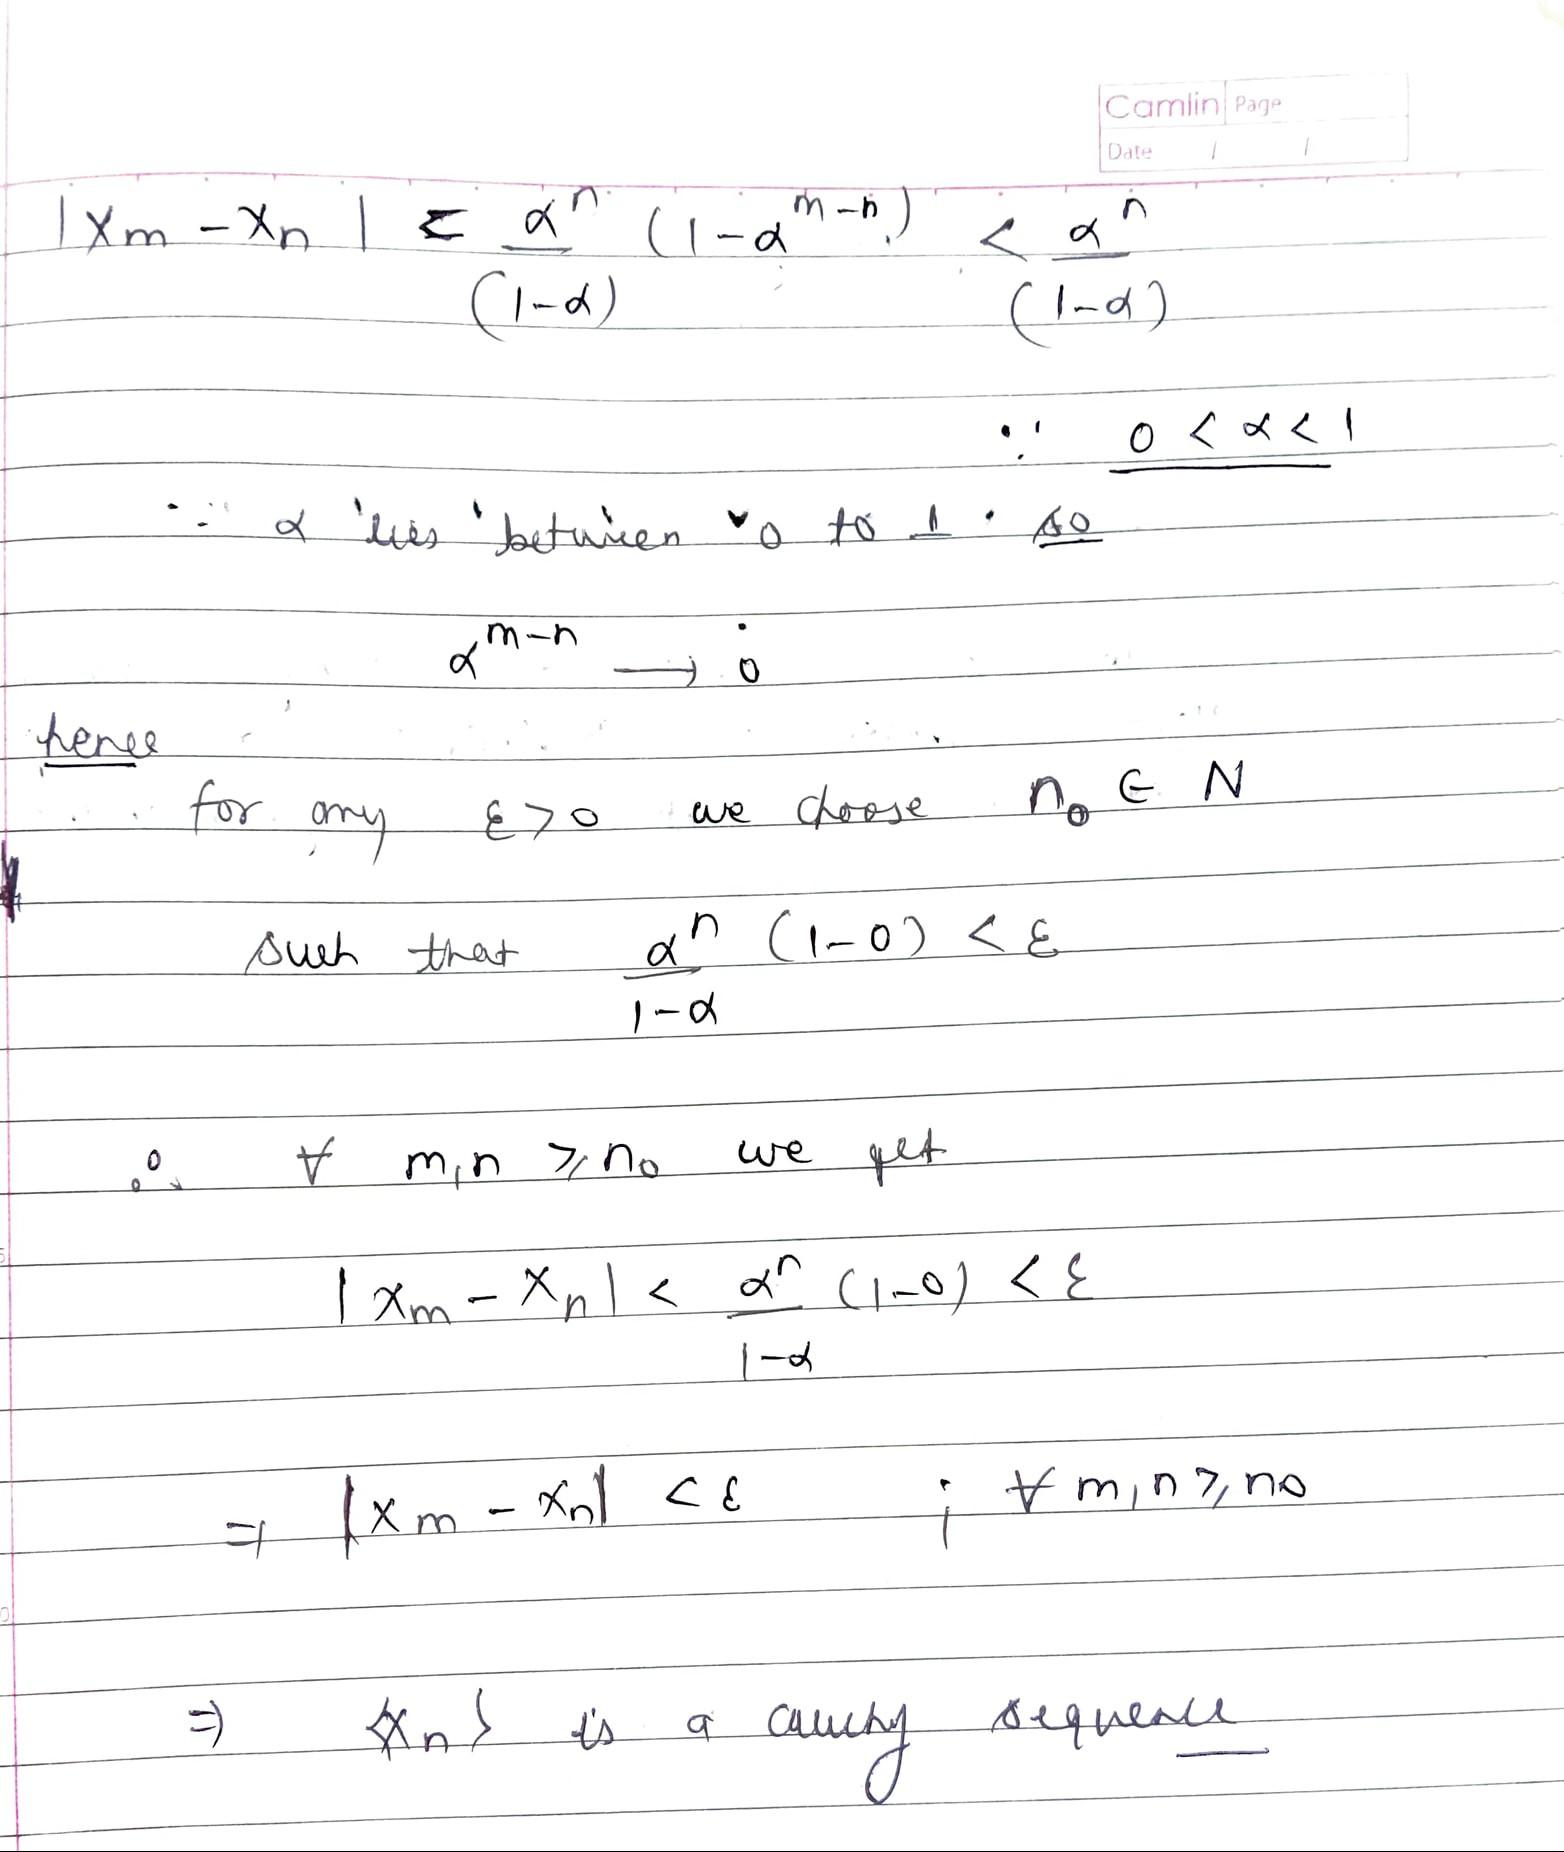 Camlin Page
Date / /
|xm - xn| ≤ α^n/(1-α) (1-α^(m-n)) < α^n/(1-α)
∵ 0 < α < 1
∵ α lies between 0 to 1 . so
α^(m-n) → 0
hence
for any ε>0 we choose n₀ ∈ N
such that α^n/1-α (1-0) < ε
∴ ∀ m,n ≥ n₀ we get
|xm - xn| < α^n/1-α (1-0) < ε
⇒ |xm - xn| < ε ; ∀ m,n ≥ n₀
⇒ {xn} is a cauchy sequence